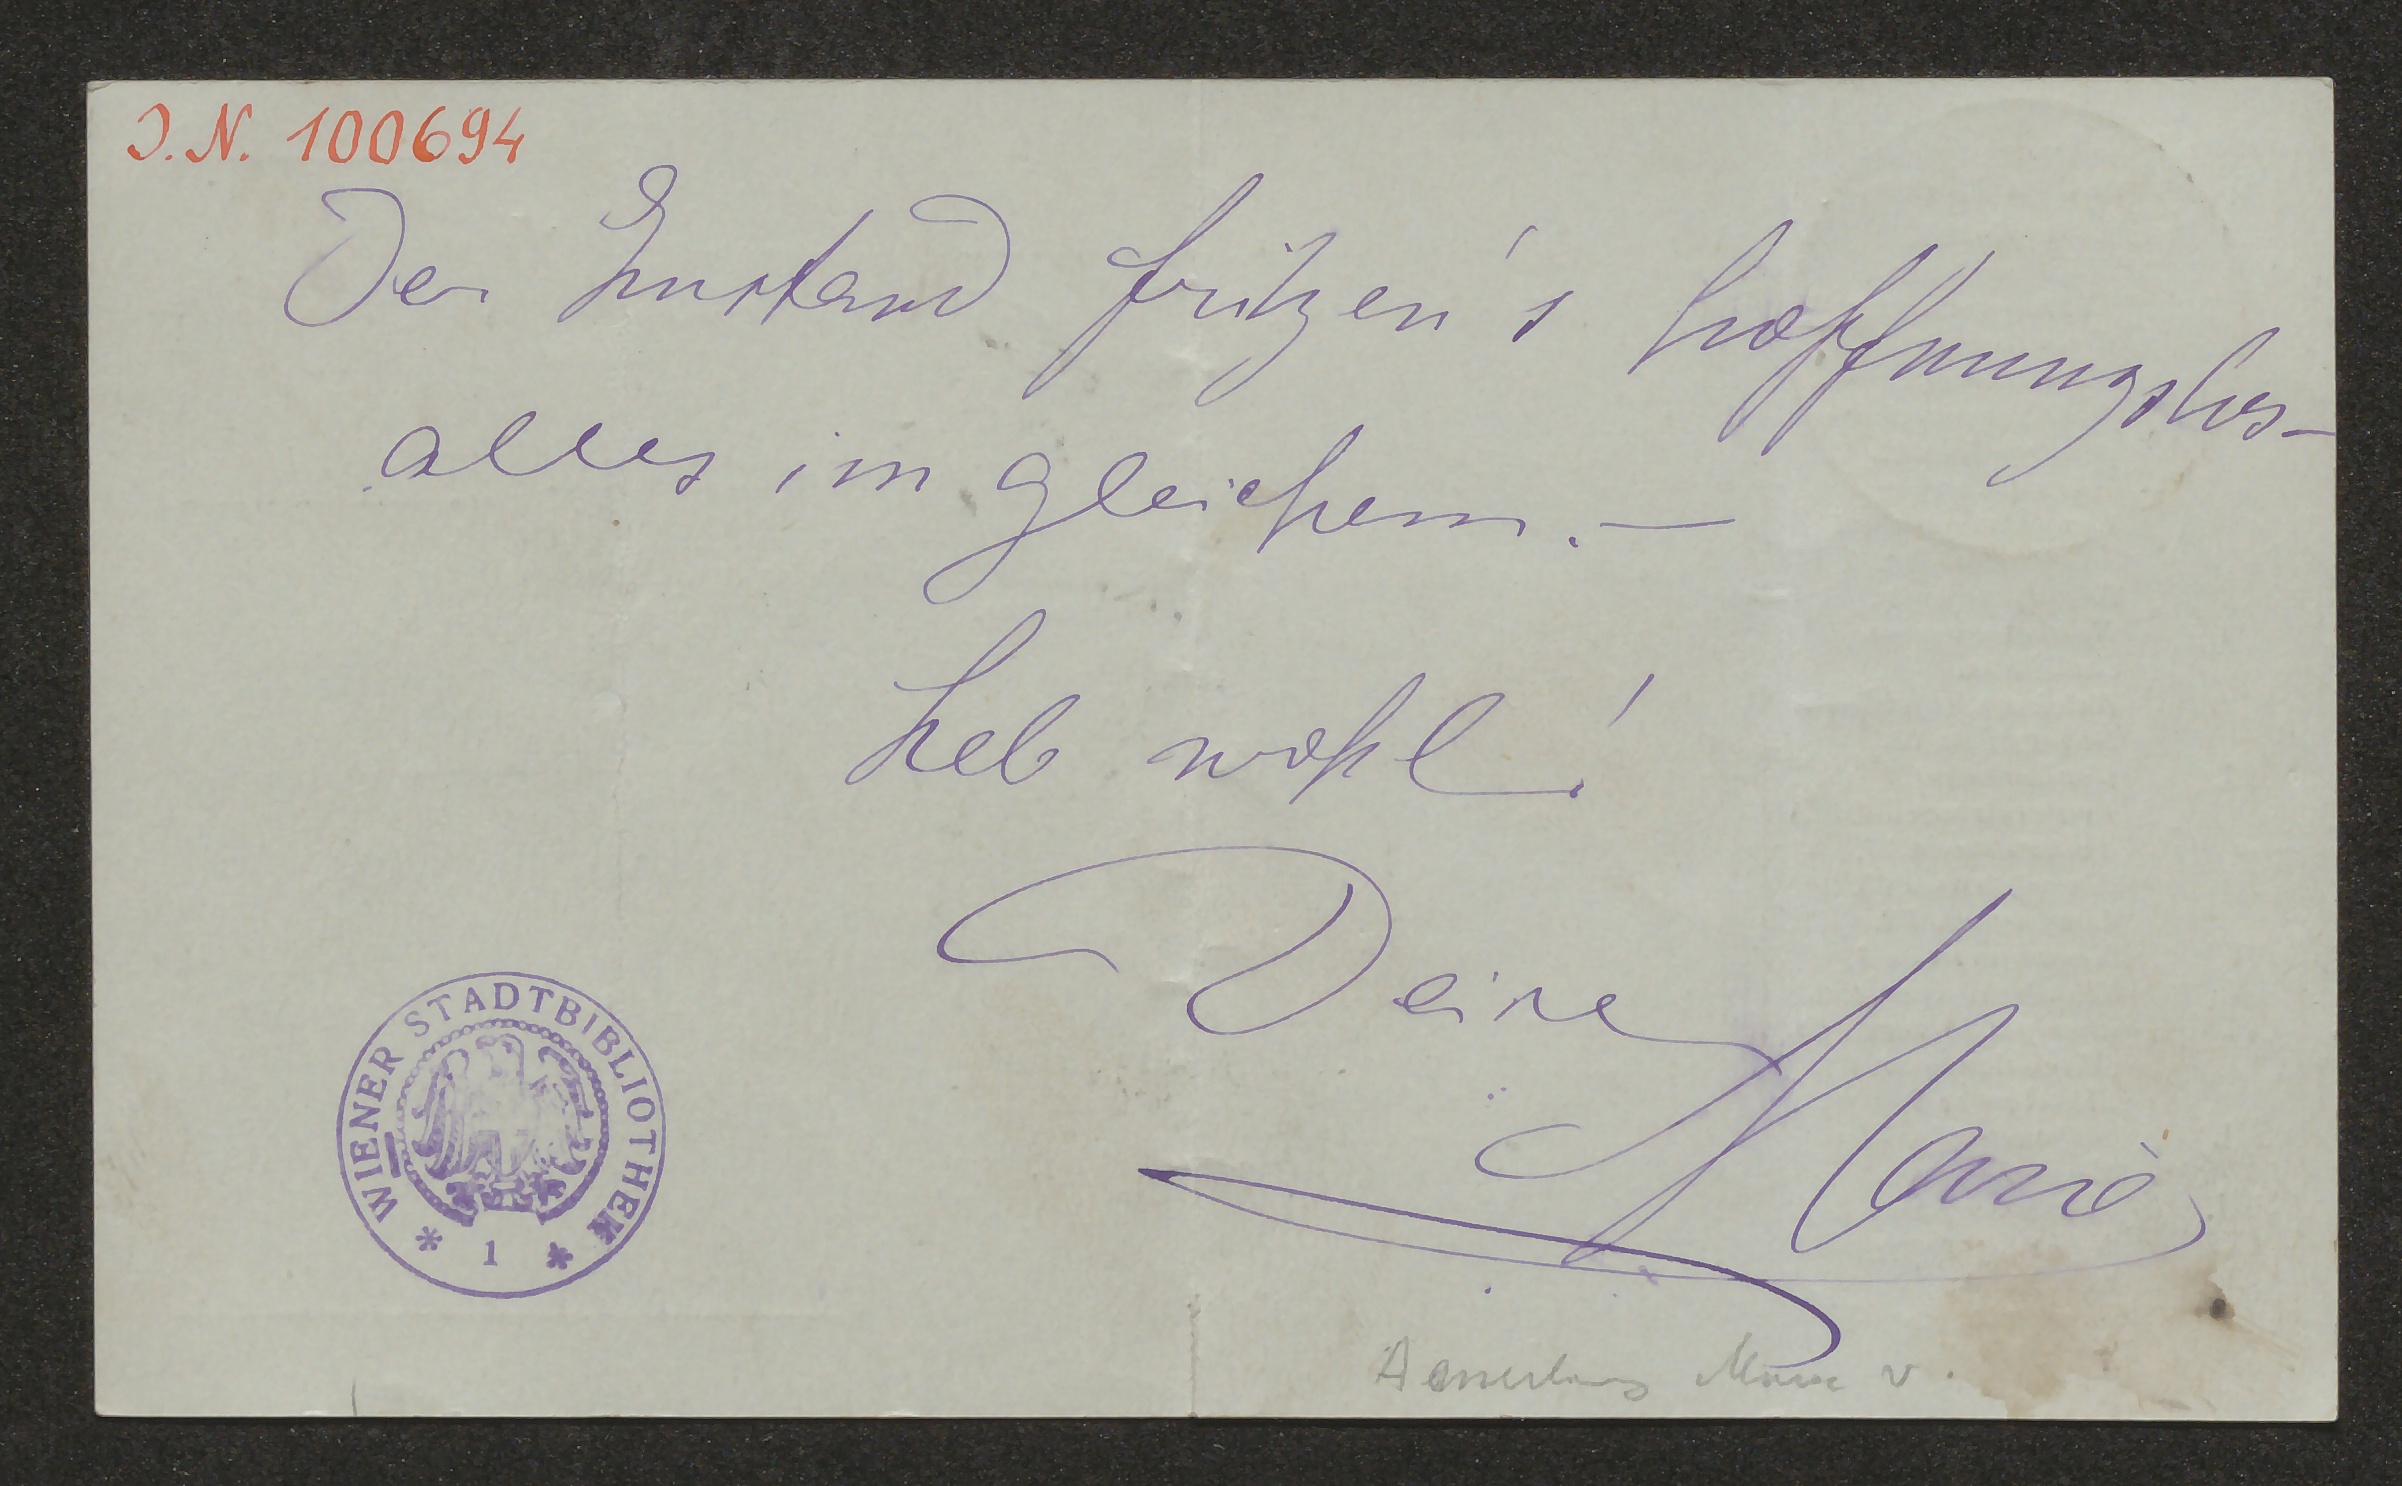 J.N. 100694
Der Zustand Fritzen's hoffnungslos-
alles im gleichem. —
Leb wohl!
Deine
Marie
WIENER STADTBIBLIOTHEK
* 1 *
Marie v.